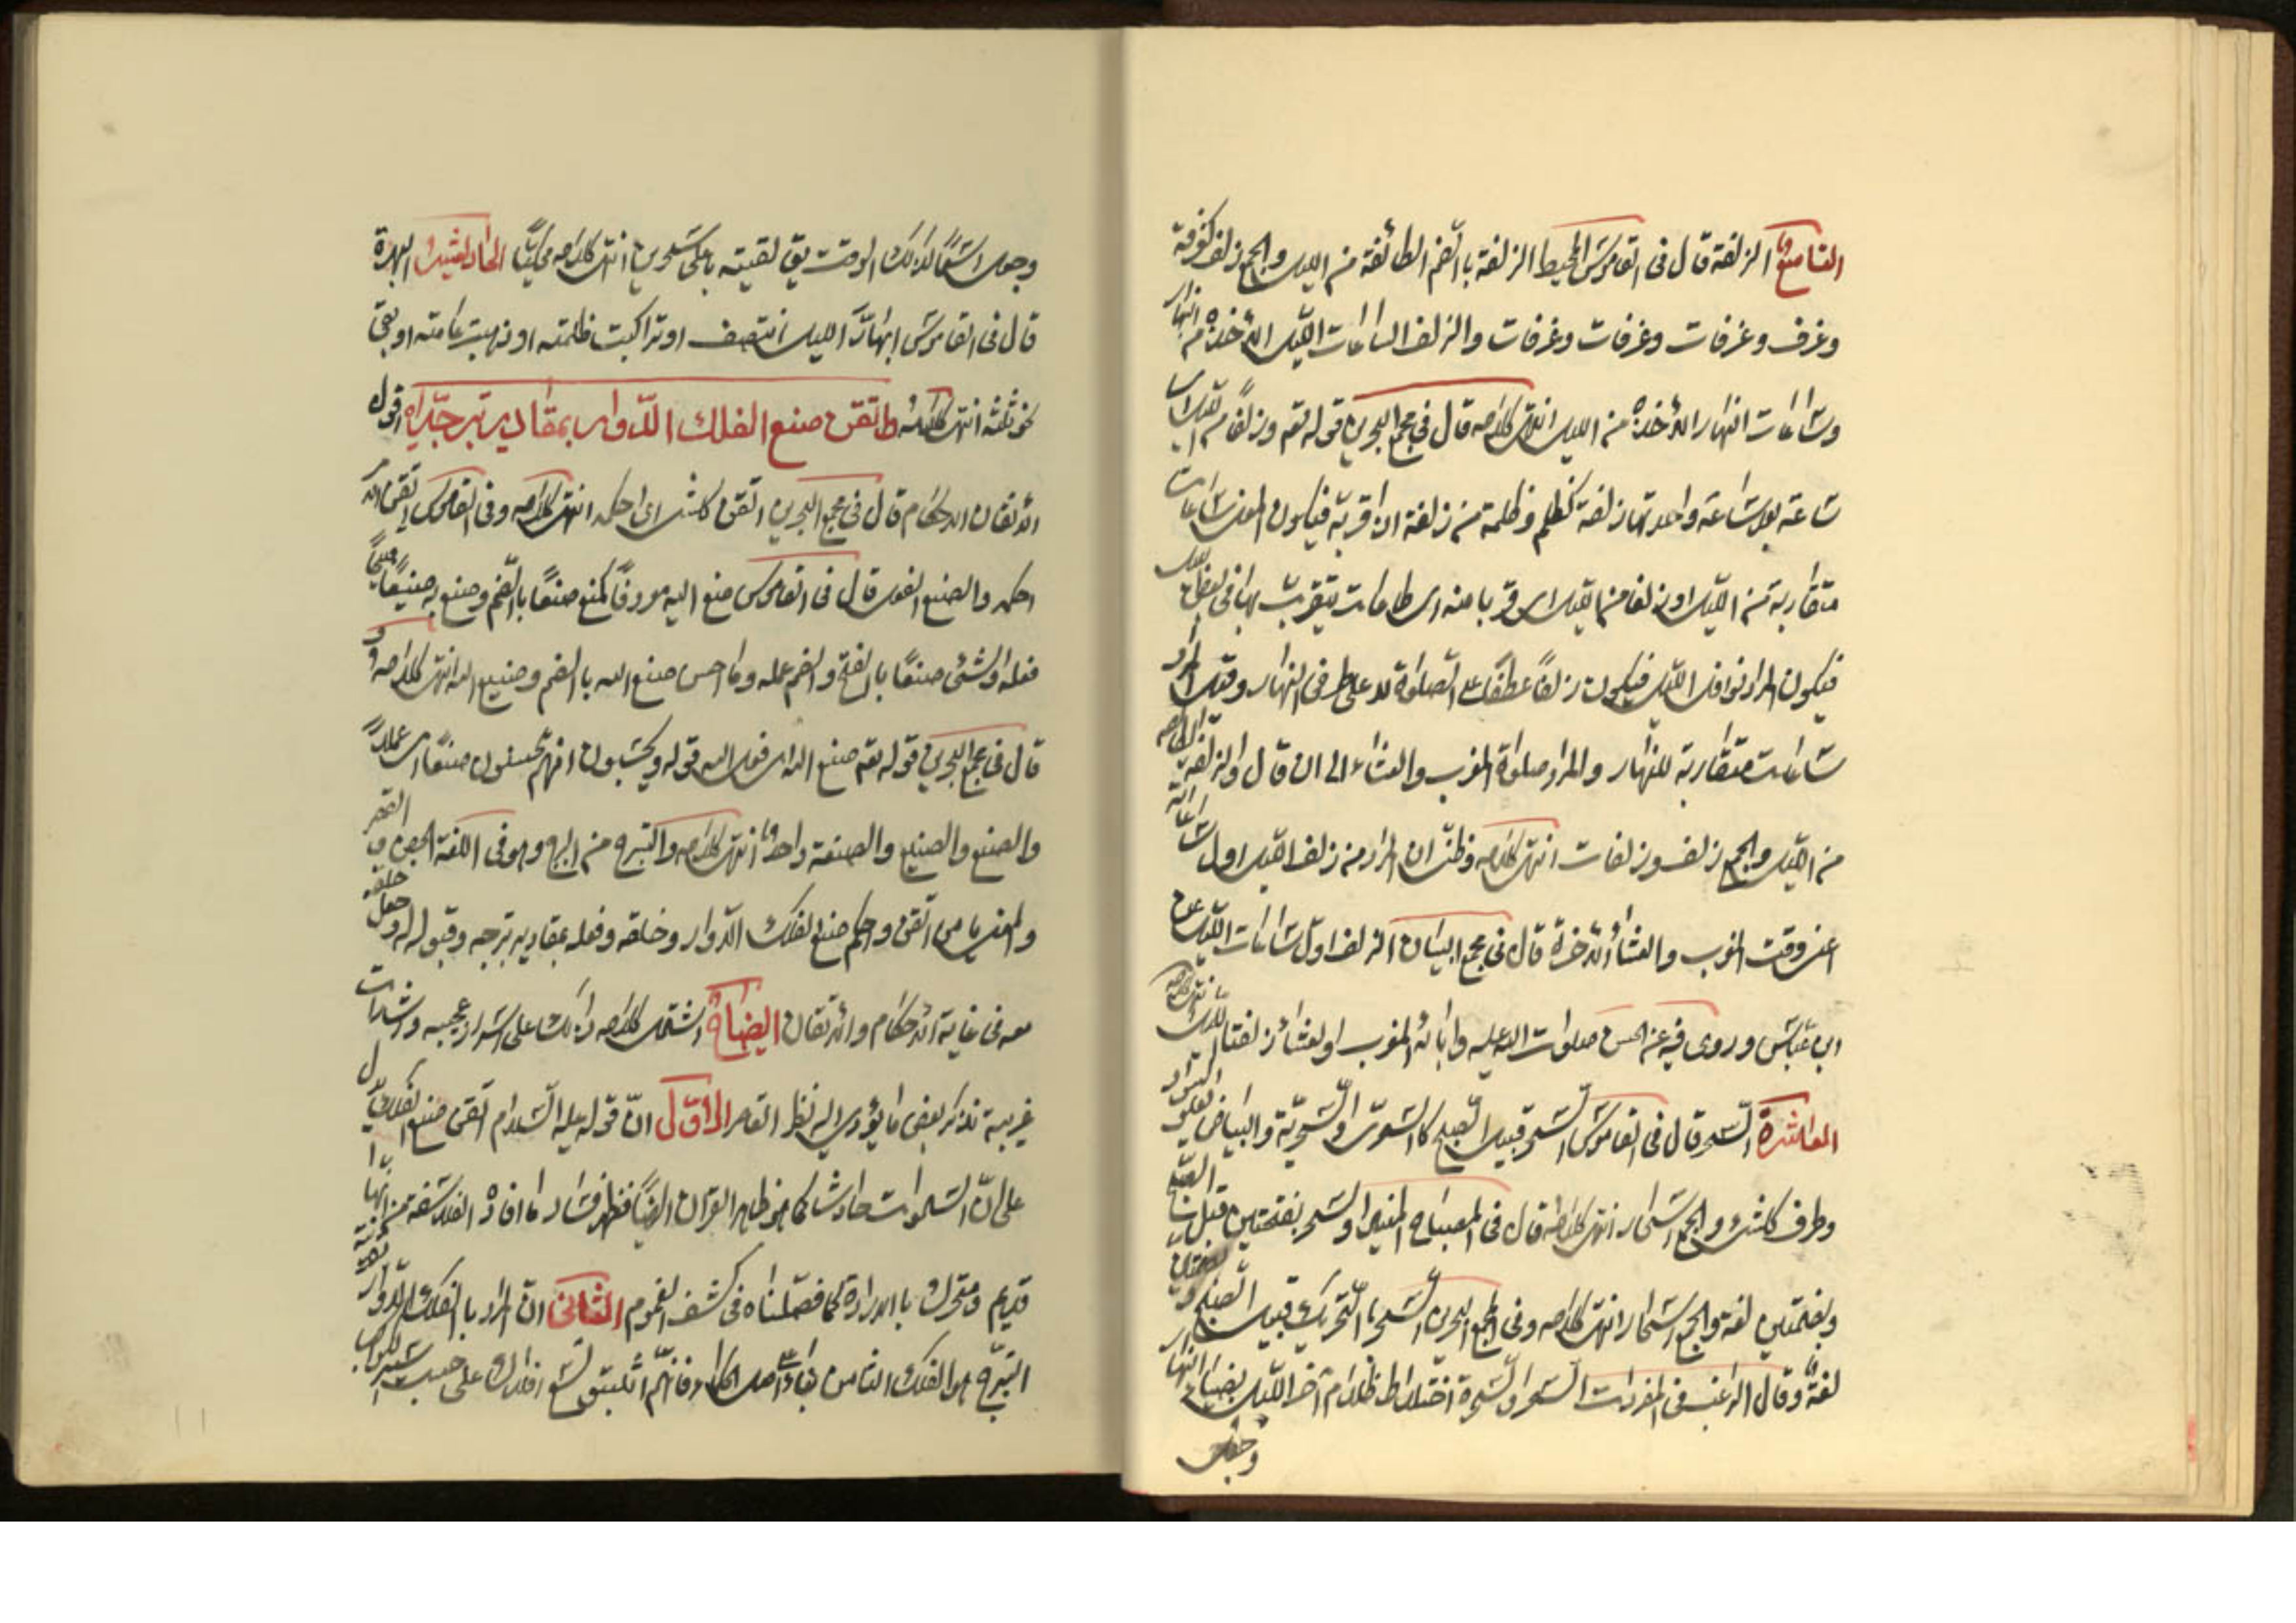 التاسعة الزلفة قال فى القاموس المحيط الزلفة بالضم الطائفة من الليل والجمع زلف كغرفة
وغرف وغرفات وغرفات وغرفات والزلف الساعات الليل الآخذة من النهار
وساعات النهار الآخذة من الليل انتهى كلامه قال فى مجمع البحرين قوله تعم وزلفا من الليل اى
ساعة بعد ساعة واحدتها زلفة كظلم وظلمة من زلفة اى قربة فيكون المعنى ساعات
متقاربة من الليل او زلفا من الليل اى قربا منه اى طاعات يتقرب بها فى بعض الليل
فيكون المراد نوافل الليل فيكون زلفا عطفا على الصلوة لا على طرفى النهار وقيل اراد
ساعات متقاربة للنهار والمراد صلوة المغرب والعشاء الى ان قال والزلفة
من الليل والجمع زلف وزلفات انتهى كلامه وظنى ان المراد من زلف الليل اول ساعاته
اعنى وقت المغرب والعشاء الآخرة قال فى مجمع البيان الزلف اول ساعات الليل عن
ابن عباس وروى فيه عن الحسن صلوات الله عليه وابائه المغرب والعشاء زلفتا الليل انتهى كلامه
العاشرة السحر قال فى القاموس السحر قبيل الصبح كالسحرى والسحرية والبياض يعلو السواد
وطرف كلشئ والجمع اسحار انتهى كلامه قال فى المصباح المنير والسحر بفتحتين قبل الصبح
وبضمتين لغة والجمع اسحار انتهى كلامه وفى المجمع البحرين السحر بالتحريك قبيل الصبح و
لغة وقال الراغب فى المفردات السحر والسحرة اختلاط ظلام آخر الليل بضياء النهار
وجعل
وجعل اسما لذلك الوقت يق لقيته باعلى سحرين انتهى كلامه الحادية عشر البهرة
قال فى القاموس ابهار الليل انتصف او تراكبت ظلمته او ذهبت عامته او بقى
نحو ثلثه انتهى كلامه واتقن صنع الفلك الدوار بمقادير تبرجه اقول
الاتقان الاحكام قال فى مجمع البحرين اتقن كلشئ اى احكمه انتهى كلامه وفى القاموس اتقن الامر
احكمه والصنع الفعل قال فى القاموس صنع اليه معروفا كمنع صنعا بالضم وصنع به صنيعا قبيحا
فعله والشئ صنعا بالفتح والضم عمله وما احسن صنع الله بالضم وصنيع الله انتهى كلامه و
قال فى مجمع البحرين قوله تعم صنع الله اى فعل الله قوله ويحسبون انهم يحسنون صنعا اى عملا
والصنع والصنيع والصنعة واحد انتهى كلامه والتبرج من البرج وهو فى اللغة الحصن و القصر
والمعنى يا من اتقن واحكم صنع الفلك الدوار وخلقه وفعله بمقادير تبرجه وقبوله له وجعل خلقه
معه فى غاية الاحكام والاتقان ايضاح اشتمل كلامه ذلك على اسرار عجيبه واشارات
غريبة نذكر بعض ما يؤدى اليه نظر القاصر الاول ان قوله عليه السلام اتقن صنع الفلك يدل
على ان السموات حادثة كما هو ظاهر القران ايضا فظهر فساد ما افاد الفلاسفة من انها
قديم ومتحرك بالارادة كما فصلناه فى كشف الغموم الثانى ان المراد بالفلك الدوار
التبرج هو الفلك الثامن فانهم اثبتوا تسع افلاك على حسب سير الكواكب